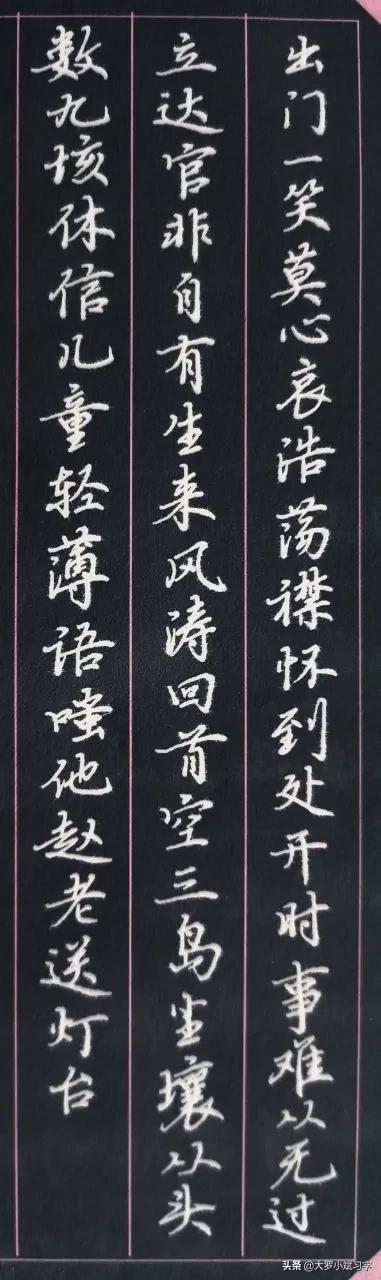 出门一笑莫心哀浩荡襟怀到处开时事难从无过
立达官非自有生来风涛回首空三岛尘壤从头
数九垓休信儿童轻薄语嗤他赵老送灯台
头条 @大罗小斌习字